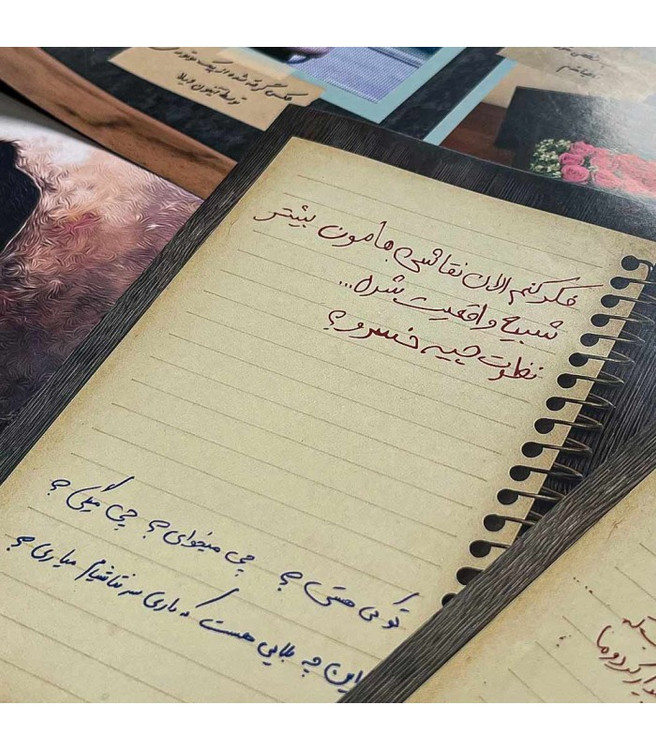 عکس گرفته شده از یک
توسط آیتون
فکر کنم الان نقاشی هامون بیشتر
شبیه واقعیت شدن...
نظرت چیه خسرو؟
تو کی هستی؟ چی میخوای؟ چی میگی؟
این چه بلایی هست که داری سر نقاشیام میاری؟